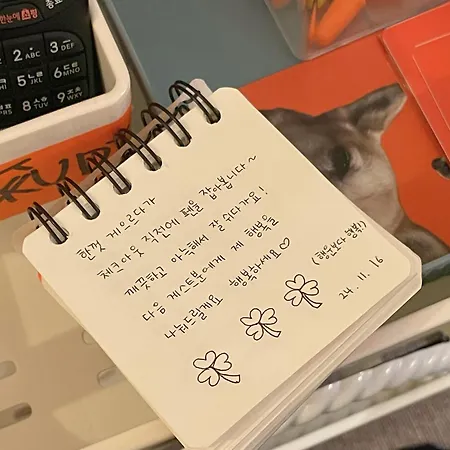 한눈에쇼핑
2 ABC
3 DEF
5 JKL
6 MNO
8 TUV
9 WXYZ
한껏 게으르다가
체크아웃 직전에 펜을 잡아봅니다~
깨끗하고 아늑해서 잘 쉬다가요!
다음 게스트분에게 제 행복을
나눠드릴게요 행복하세요♡
(행운보다 행복!)
24. 11. 16